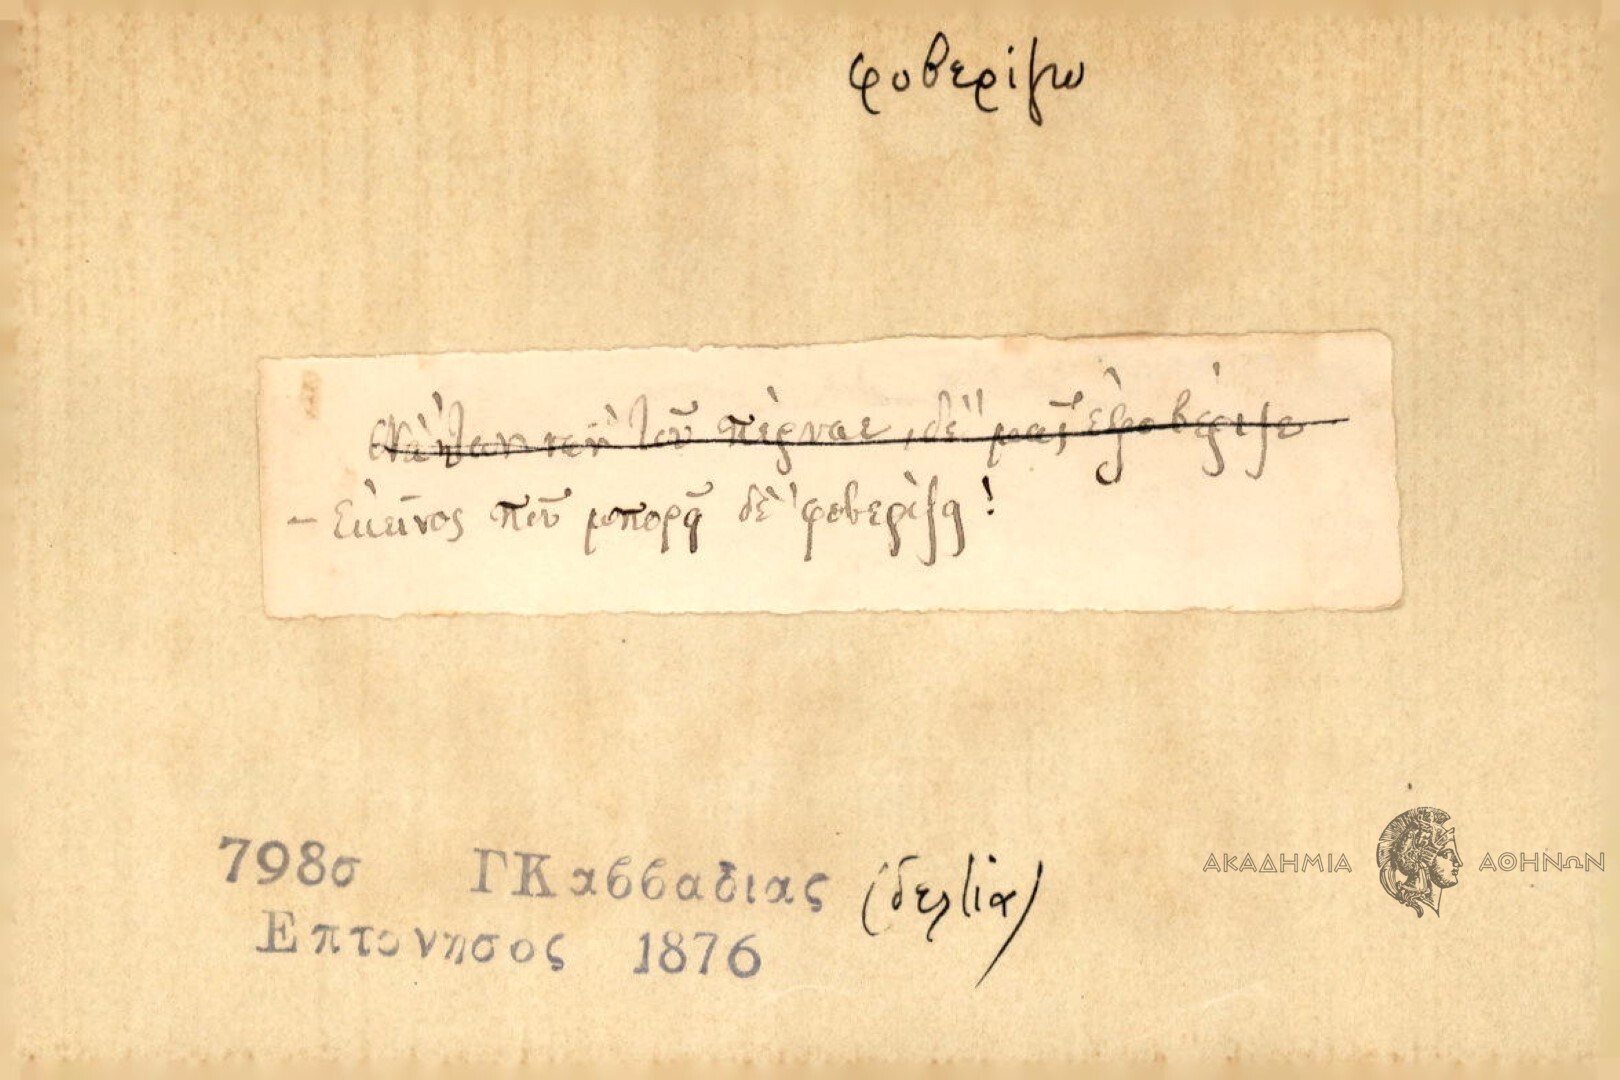 φοβερίζω
τοῦ πέρναε, δὲ μᾶς ἐφοβέριζε
– Ἐκεῖνος ποῦ μπορᾷ δὲ φοβερίζῃ!
798σ ΓΚαββαδιας (δελτία)
Επτονησος 1876
ΑΚΑΔΗΜΙΑ ΑΘΗΝΩΝ